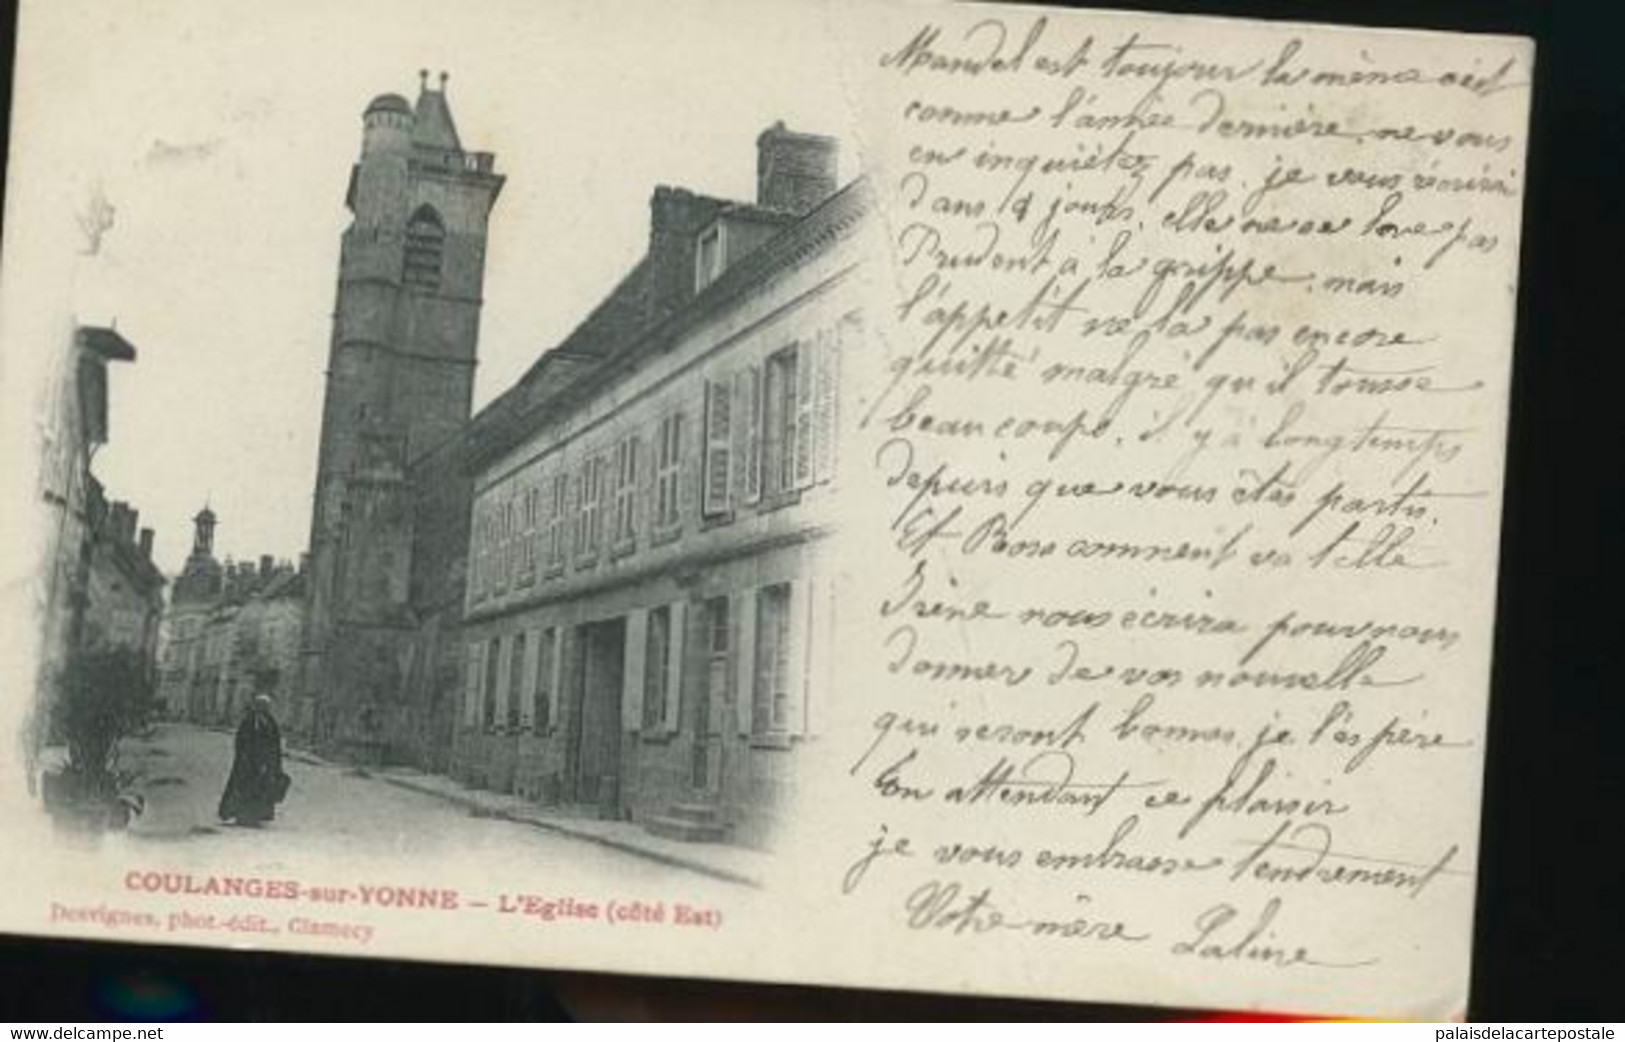 Mandel est toujour la même c'est
comme l'année dernière, ne vous
en inquiétez pas, je vous écrirai
dans 4 jours, elle ne se love pas
Prudent à la grippe, mais
l'appetit ne la pas encore
quitté malgré qu'il tousse
beaucoupe, il y à longtemps
depuis que vous êtes partis.
Et Rosa comment va telle
Irène nous écrira pouvnous
donner de vos nouvelle
qui seront bonnes je l'éspère
En attendant ce plaisir
je vous embrasse tendrement
Votre mère Laline
COULANGES-sur-YONNE — L'Eglise (côté Est)
Desvignes, phot.-édit., Clamecy
www.delcampe.net
palaisdelacartepostale